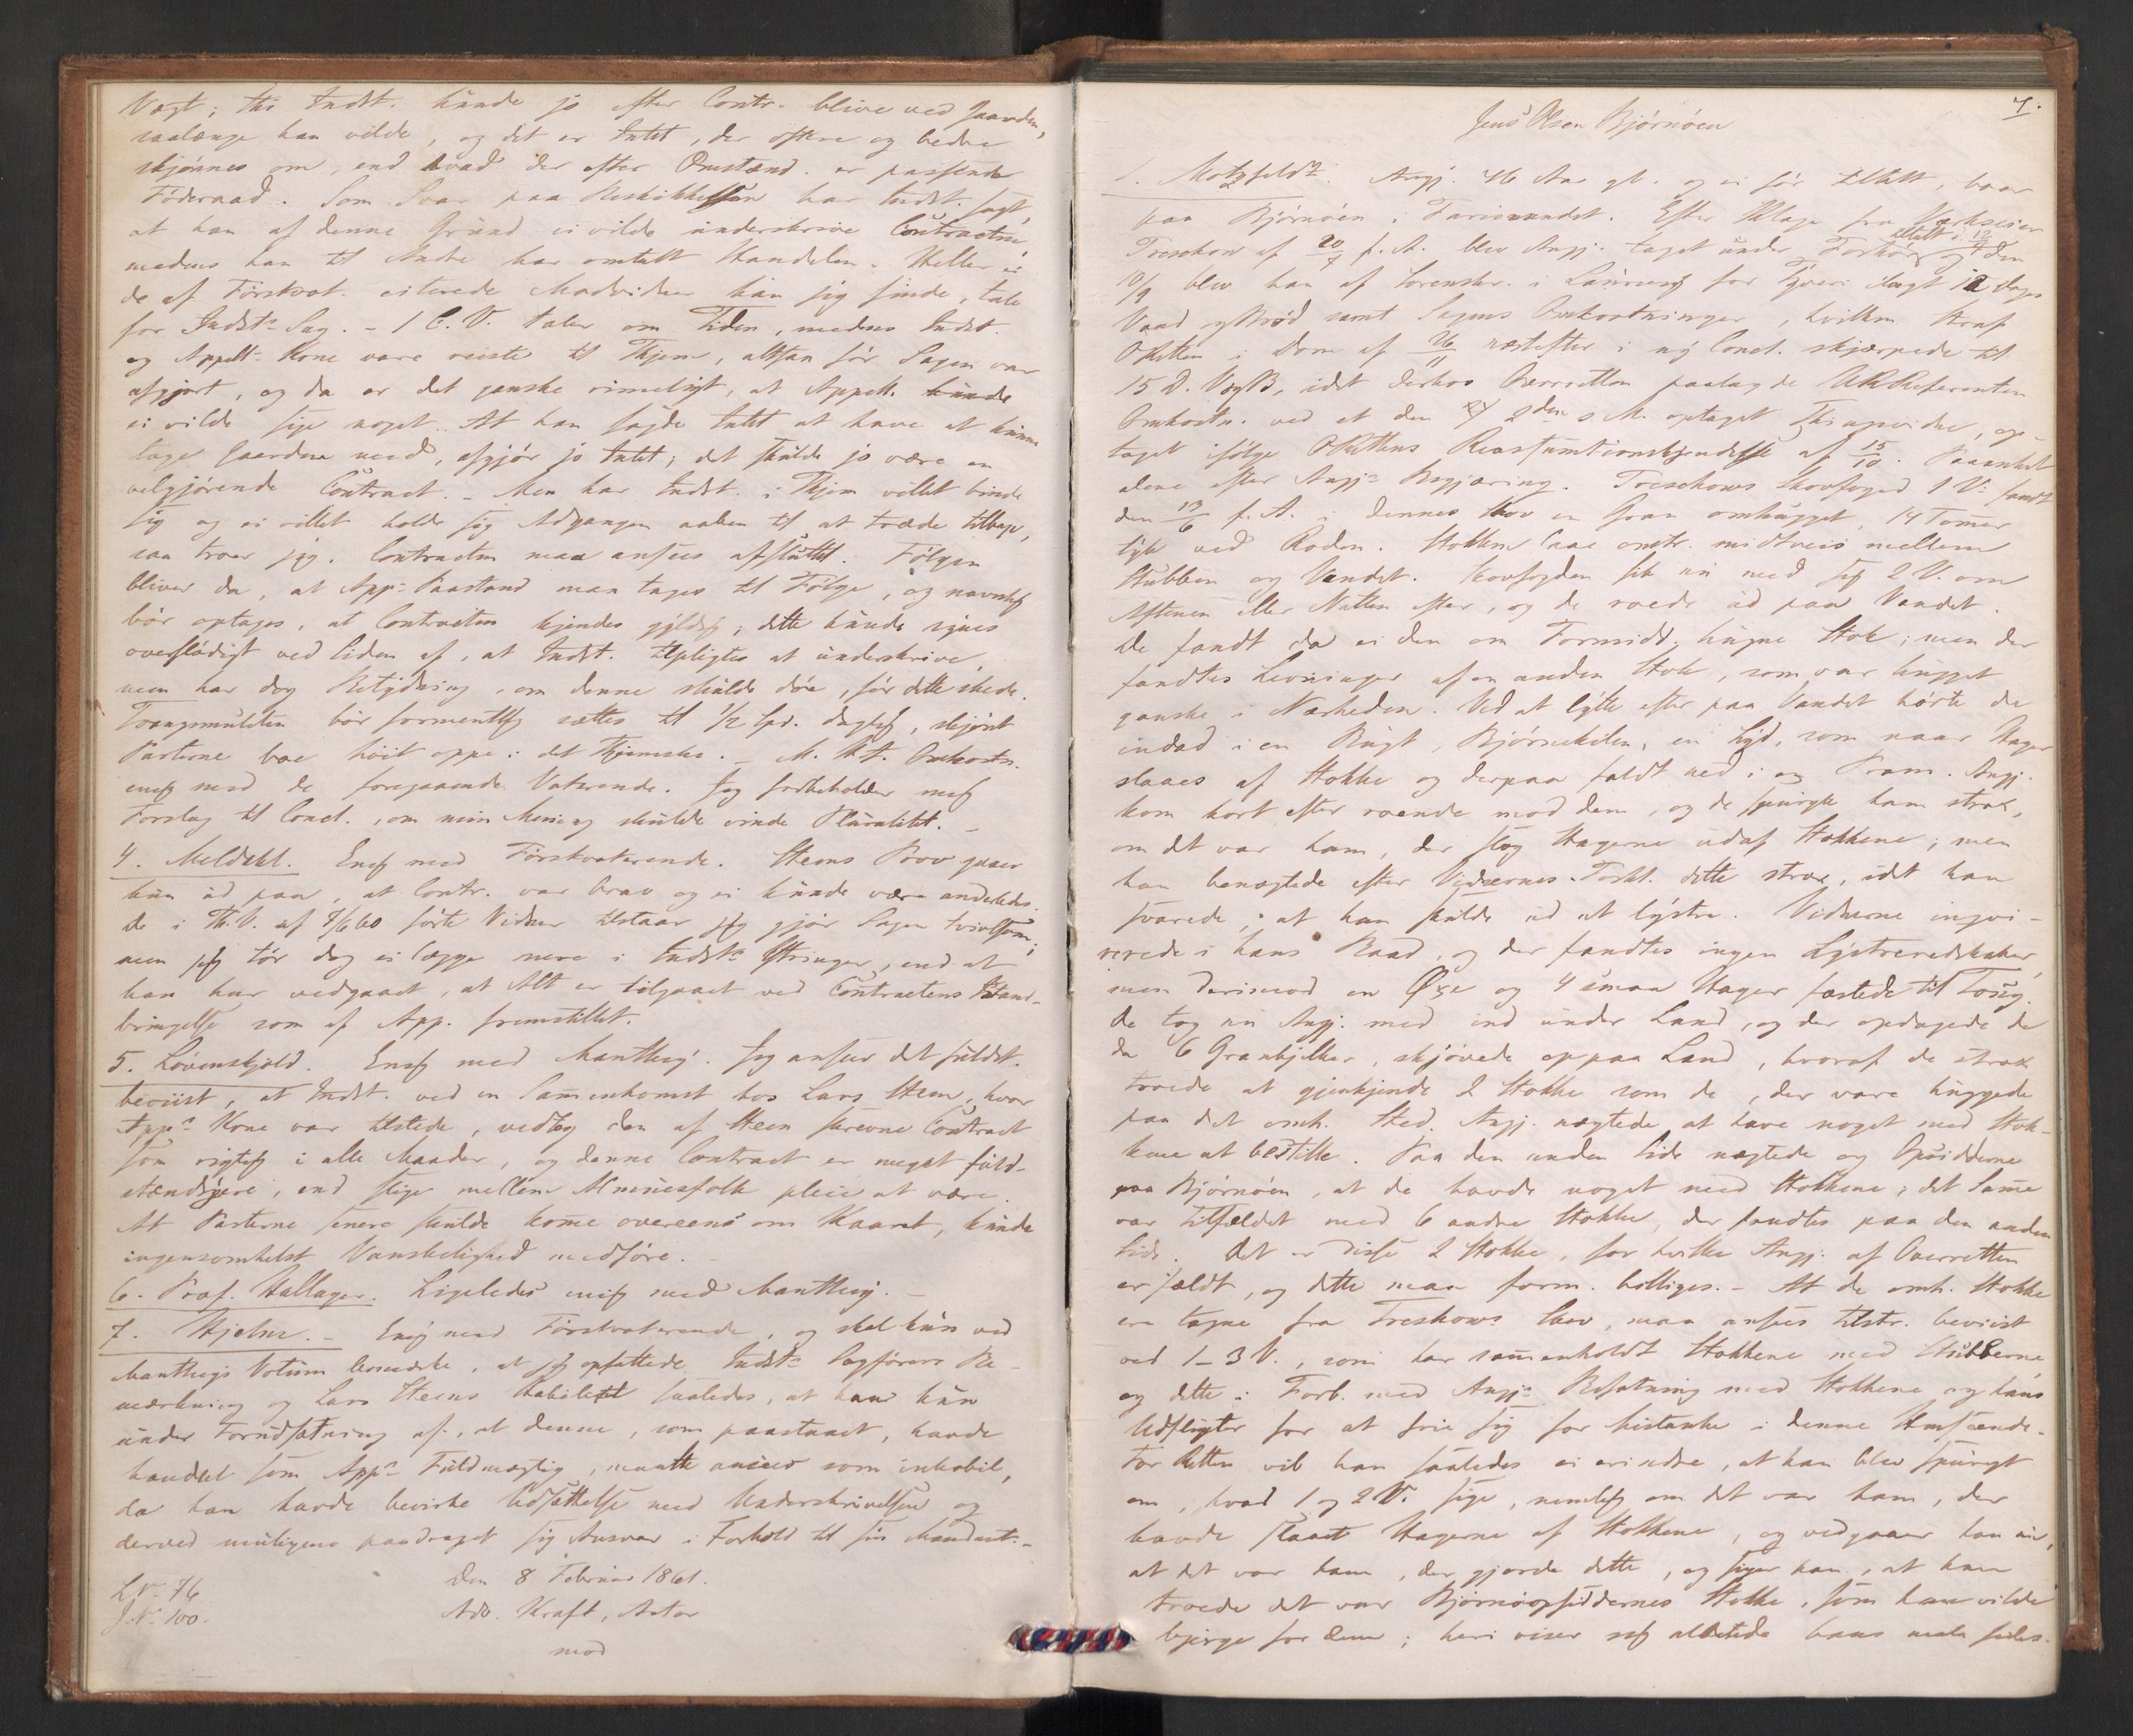 Vægt; thi Indst. kunde jo efter Contr. blive ved Gaarden,
saalænge han vilde, og det er Intet, der oftere og bedre
skjønnes om, end hvad der efter Omstænd. er passende
Föderaad. Som Svar paa Beskikkelsen har Indst. sagt,
at han af denne Grund ei vilde underskrive Contracten,
medens han til Andre har omtalt Handelen. Heller ei
de af Förstvot. citerede Modvidner kan jeg finde, tale
for Indsts Sag. - 1 C. V. taler om Tiden, medens Indst.
og Appelt- Kone vare reiste til Thjem, altsaa för Sagen var
afgjort, og da er det ganske rimeligt, at Appelt. kunde
ei vilde sige noget. At han sagde Intet at have at kunne
tage Gaarden med, afgjör jo Intet; det skulde jo være en
velgjörende Contract. - Men har Indst. i Thjem villet binde
sig og ei villet holde sig Adgangen aaben til at træde tilbage,
saa troer jeg, Contracten maa ansees afsluttet. Fölgen
bliver da, at Apps Paastand maa tages til Fölge, og navnlig
bör optages, at Contracten kjendes gyldig; dette kunde synes
overflödigt ved Siden af, at Indst. tilpligtes at underskrive,
men har dog Betydning, om denne skulde döe, för dette skede.
Tvangsmulcten bör formentlig sættes til 1/2 Spd. daglig, skjönt
Parterne boe höit oppe i det Thjemske. - M. H. t. Omkostn.
enig med de foregaaende Voterende. Jeg forbeholder mig
Forslag til Concl., om min Mening skulde vinde Pluralitet. -
4. Meldahl. Enig med Förstvoterende. Steens Prov gaaer
kun ud paa, at Contr. var brav og ei kunde være anderledes.
De i Th. V. af 7/6 60 förte Vidner tilstaar jeg gjör Sagen tvivlsom;
men jeg tör dog ei lægge mere i Indsts Ytringer, end at
han har vedgaaet, at Alt er tilgaaet ved Contractens Istand-
bringelse som af App. fremstillet.
5. Lövenskjold. Enig med Manthey. Jeg anseer det fuldst.
beviist, at Indst. ved en Sammenkomst hos Lars Steen, hvor
Apps Kone var tilstede, vedtog den af Steen skrevne Contract
som rigtig i alle Maader, og denne Contract er meget fuld-
stændigere, end slige mellem Almuesfolk pleie at være.
At Parterne senere skulde kome overeens om Kaaret, kunde
ingensomhelst Vanskelighed medföre.
6. Prof. Hallager. Ligeledes enig med Manthey. -
7. Hjelm. - Enig med Förstvoterende, og skal kun ved
Mantheys Votum bemærke, at jeg opfattede Indsts Sagförers Be-
mærkning og Lars Steens Habilitet saaledes, at han kun
under Forudsætning af, at denne, som paastaaet, havde
handlet som Apps Fuldmægtig, maatte ansees som inhabil,
da han havde bevirket Udsættelse med Underskrivelsen og
derved muligens paadraget sig Ansvar i Forhold til sin Mandant. -
L. No 76
J. No 100.
Den 8 Februar 1861.
Adv. Kraft, Actor
mod
7.
Jens Olsen Björnöen
1. Motzfeldt. Angj. 46 Aar gl. og ei för tiltalt, boer
paa Björnöen i Farisvandet. Efter Klage fra Værkseier
Treschow af 20/7 f. A. blev Angj. taget under Forhör og den
tiltalt i 12/9
10/9 blev han af Sorenskr. i Laurvig for Tyveri ilagt 12 Dages
Vand og Bröd samt Sagens Omkostninger, hvilken Straf
ORetten i Dom af 26/11 næstefter i ny Concl. skjærpede til
15 D. V. og B., idet derhos Overretten paalagde URReferenten
Omkostn. ved et den 2den s. M. optaget Thingsvidne, op-
taget ifölge ORettens Reassumtionskjendelse af 15/10. Paaanket
alene efter Angjs Begjæring. Treschows Skovfoged 1 V. fandt
den 13/6 f. A. i dennes Skov en Gran omhugget, 14 Tomer
tyk ved Roden. Stokken laae omtr. midtveis mellem
Stubben og Vandet. Skovfogden fik nu med sig 2 V. om
Aftenen eller Natten efter, og de roede ud paa Vandet.
De fandt da ei den om Formidd. hugne Stok; men der
fandtes Levninger af en anden Stok, som var hugget
ganske i Nærheden. Ved at lytte efter paa Vandet hörte de
indad i en Bugt, Björnekilen, en Lyd, som naar Hager
slaaes af Stokke og derpaa faldt ned i en Pram. Angj.
kom kort efter roende mod dem, og de spurgte ham strax,
om det var ham, der slog Hagerne ud af Stokkene; men
han benægtede efter Vidnernes Forkl. dette strax, idet han
svarede, at han skulde ud at lystre. Vidnerne inqvi-
rerede i hans Baad, og der fandtes ingen Lystreredskaber,
men derimod en Öxe og 4 smaa Hager fæstede til Toug.
De tog nu Angj. med ind under Land, og der opdagede de
da 6 Granbjelker, skjövede op paa Land, hvoraf de strax
troede at gjenkjende 2 Stokke som de, der vare huggede
paa det omh. Sted. Angj. nægtede at have noget med Stok-
kene at bestille. Paa den anden Side nægtede og Opsidderne
paa Björnöen, at de havde noget med Stokkene; det Same
var Tilfældet med 6 andre Stokke, der fandtes paa den anden
Side. Det er disse 2 Stokke, for hvilke Angj. af Overretten
er fældt, og dette maa form. billiges. - At de omh. Stokke
ere tagne fra Treschows Skov, maa ansees tilstr. beviist
ved 1-3 V., som har samenholdt Stokkene med Stubberne
og dette i Forb. med Angjs Befatning med Stokkene og hans
Udflygter for at frie sig for Mistanke i denne Henseende.
For Retten vil han saaledes ei erindre, at han blev spurgt
om, hvad 1 og 2 V. sige, nemlig om det var ham, der
havde slaaet Hagerne af Stokkene, og vedgaaer han nu,
at det var ham, der gjorde dette, og siger han, at han
troede det var Björnöopsiddernes Stokke, som han vilde
bjerge for dem; heri viser sig allerede hans mala fides.